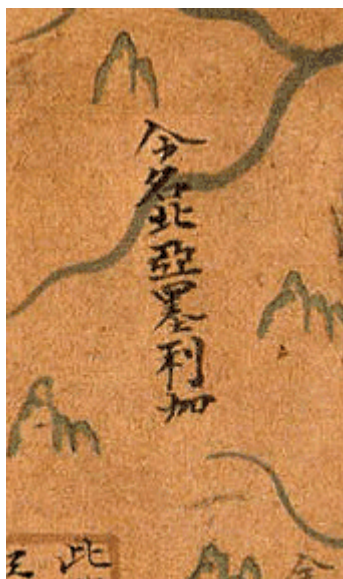 今名北亞墨利加
此